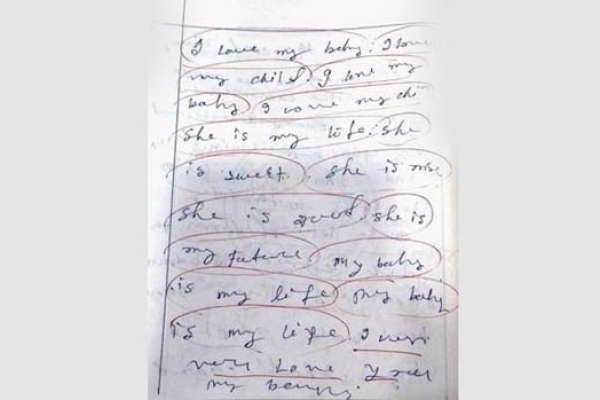 I love my baby. I love
my child. I love my
baby I love my chi
she is my life. she
is sweet. she is nise
she is good. she is
my future. my baby
is my life my baby
is my life. I very
very Love you
my